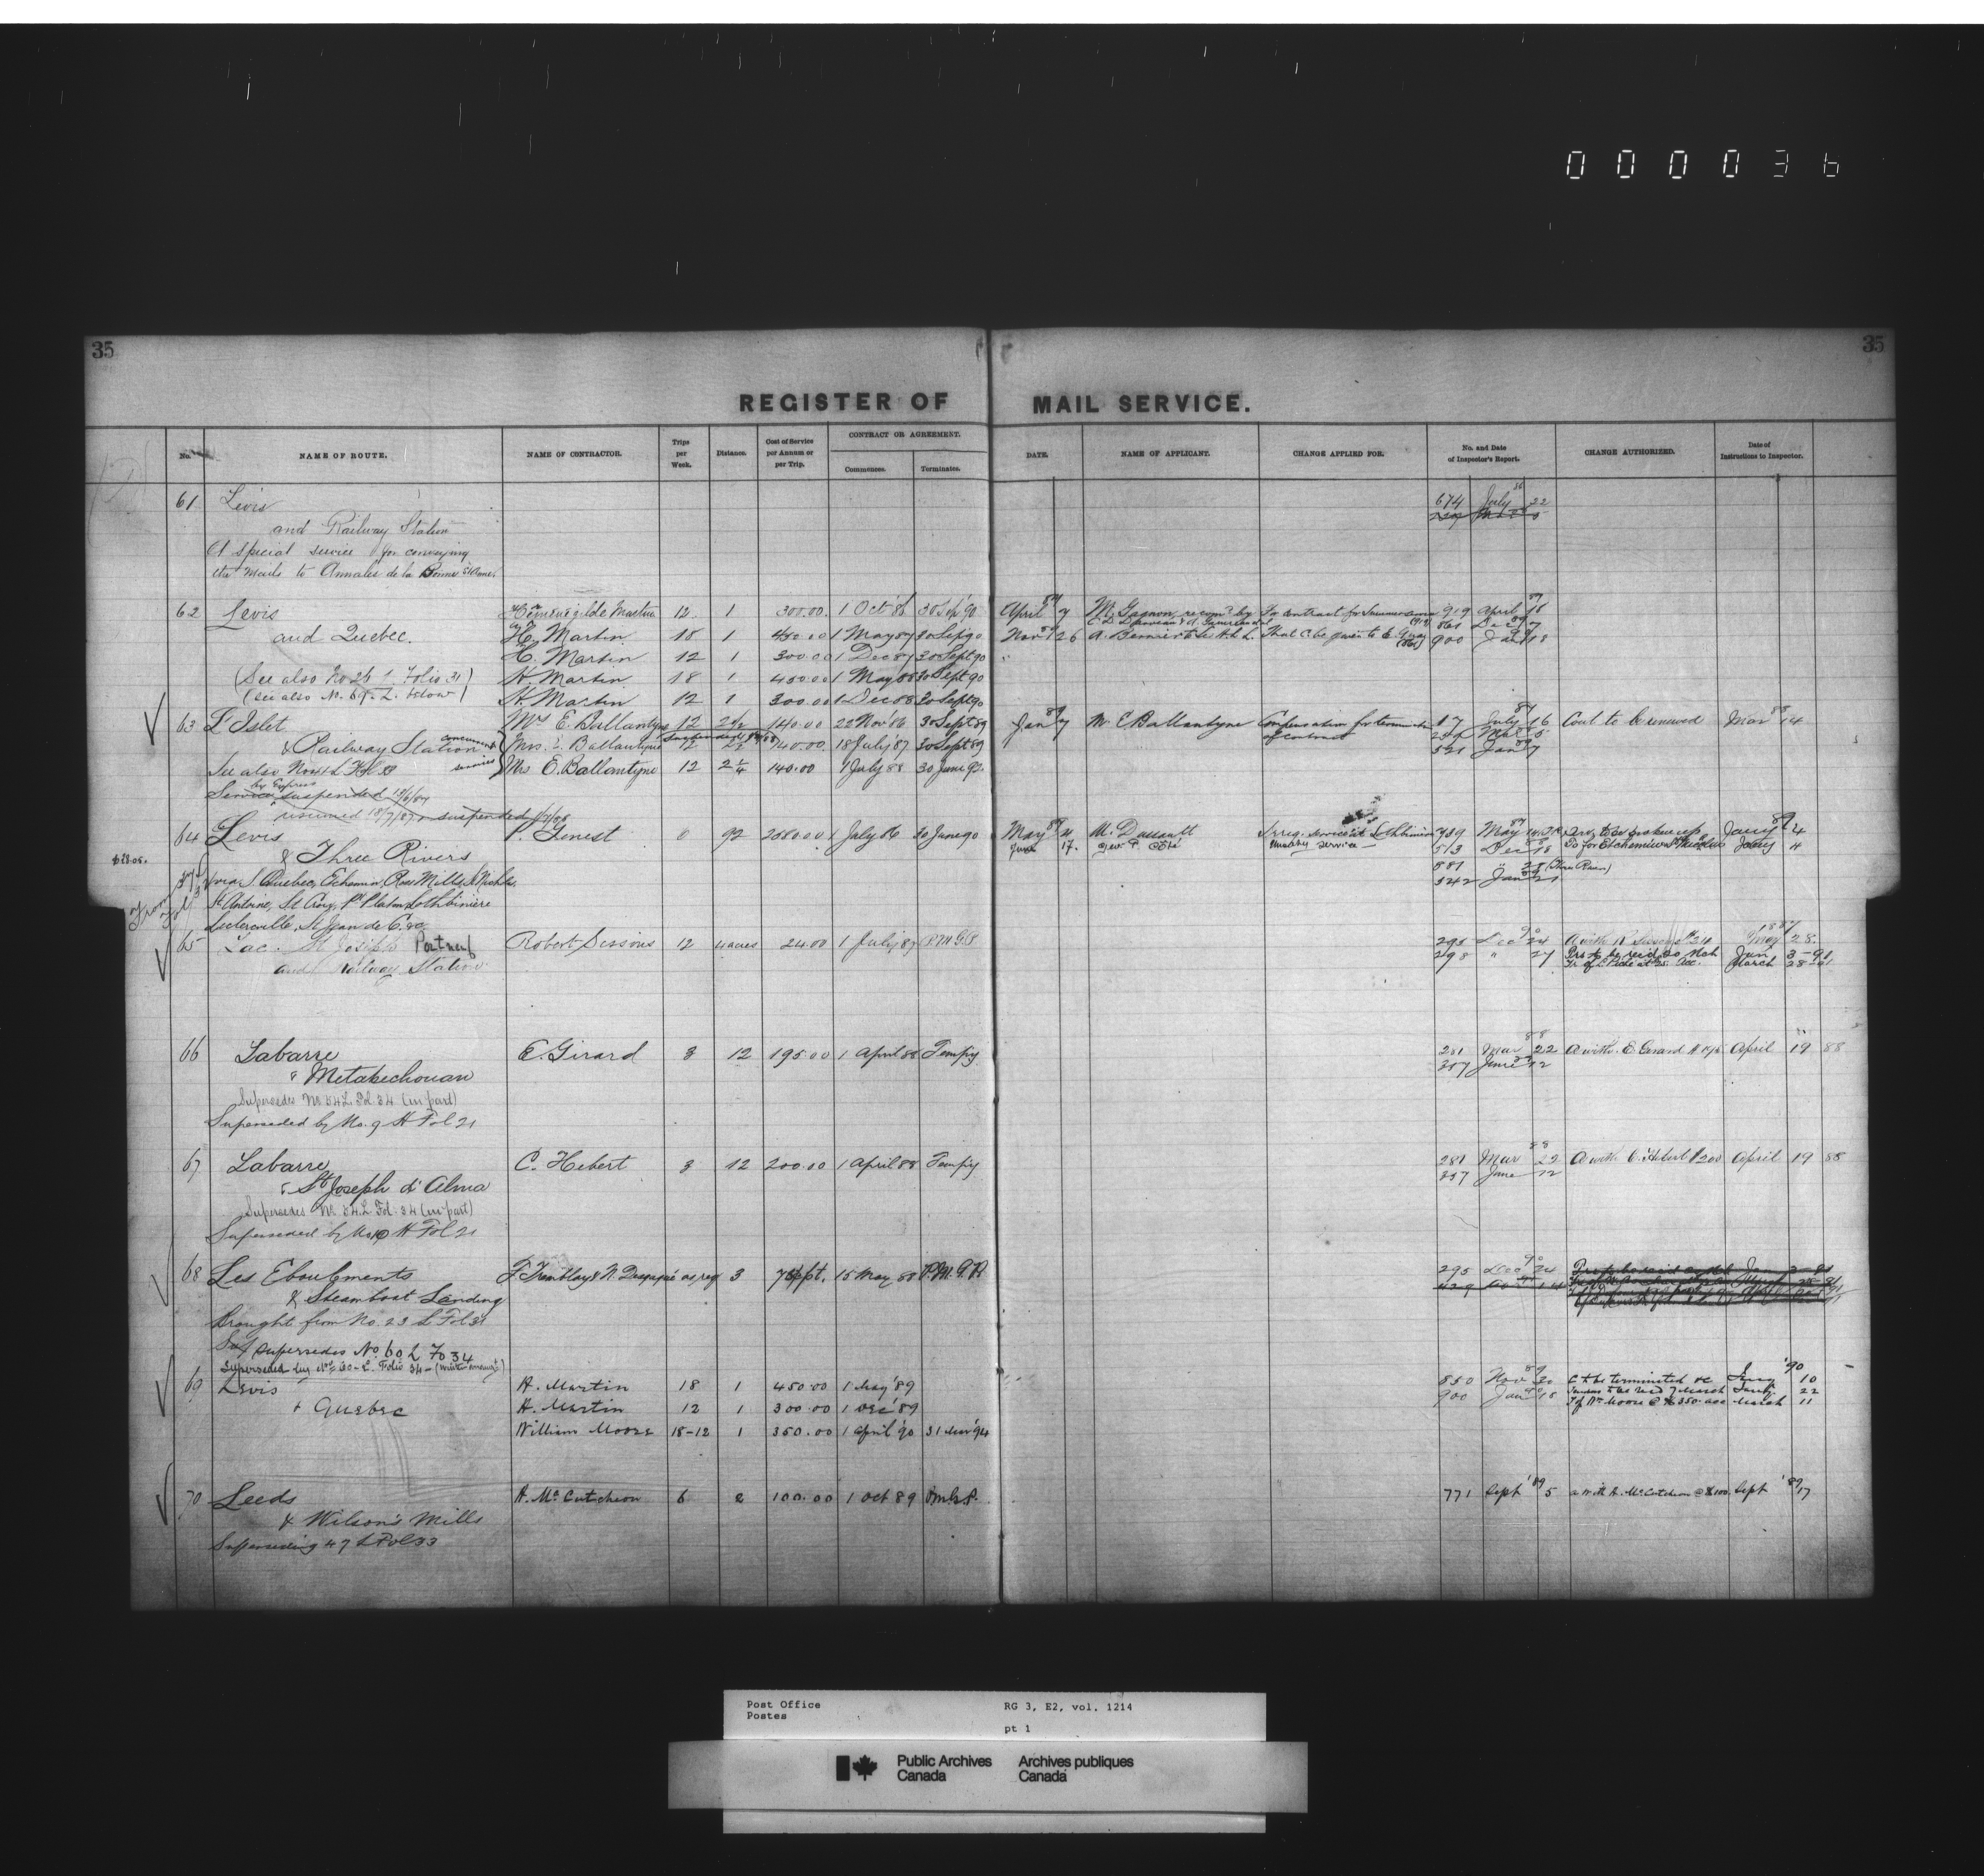 000036
35
35
REGISTER OF MAIL SERVICE.
No. NAME OF ROUTE. NAME OF CONTRACTOR. Trips per Week. Distance. Cost of Service per Annum or per Trip. CONTRACT OR AGREEMENT. Commences. Terminates. DATE. NAME OF APPLICANT. CHANGE APPLIED FOR. No. and Date of Inspector's Report. CHANGE AUTHORIZED. Date of Instructions to Inspector.
61 Levis 674 July 86 22
and Railway Station
A special service for conveying
the mails to Annales de la Bonne St Anne.
62 Levis Martin 12 1 300.00 1 Oct '86 30 Sep '90 April 87 7 M. Gagnon recomd by To contract for Summer 919 April 87 18
and Quebec. H. Martin 18 1 450.00 1 May 87 30 Sep 90 Nov 26 A. Bernier That C. be given to E. 861 Dec 7
900 Jan 18
H. Martin 12 1 300.00 1 Dec 87 30 Sept 90
(See also No 26 L Folio 31) H. Martin 18 1 450.00 1 May 88 30 Sept 90
(See also No. 69. L. below) H. Martin 12 1 300.00 1 Dec 88 30 Sept 90
63 L'Islet Mrs E. Ballantyne 12 2 1/2 140.00 22 Nov 86 30 Sept 89 Jan 89 7 Mrs E Ballantyne Compensation for termination of contract 17 July 87 16 Cont to be renewed Mar 88 14
& Railway Station concurrent services Mrs. E. Ballantyne 12 140.00 18 July '87 30 Sept 89 Mar 5
521 Jan 89 7
See also Mrs E. Ballantyne 12 2 1/4 140.00 1 July '88 30 June 92.
by Express
Service suspended 13/6/87
resumed 18/7/87. suspended
64 Levis P. Genest 6 92 2080.00 1 July 86 30 June 90 May 87 4 M. Dussault Irreg. service at Lotbiniere 789 May 87 Jany 4
& Three Rivers June 17. Geo. P. Côté service 513 Dec 18 Do for Etchemin & St Nicholas Jany 4
881 (Three Rivers)
342 Jan 21
via S. Quebec, Etchemin, Ross Mills, St Nicholas,
St Antoine, St Croix, Pt Platon, Lotbiniere
Leclercville, St Jean de C. &c
65 Lac St Joseph Portneuf Robert Sissons 12 4 acres 24.00 1 July 87 P.M.G.P. 295 Dec 90 24 A with R Sissons $24 May 1887 28.
and Railway Station 298 " 27 Prs to be recd 20 Mch Jan 3-91
March 28-91
66 Labarre E. Girard 3 12 195.00 1 April 88 Tempy 281 Mar 88 22 A with E Girard $195 April 19 88
" Metabechouan 357 June 12
Supersedes No 54 L Fol. 34 (in part)
Superseded by No. 9 H Fol 21
67 Labarre C. Hebert 3 12 200.00 1 April 88 Tempy 281 Mar 88 22 A with C. Hebert $200 April 19 88
" St Joseph d'Alma 357 June 12
Supersedes No. 54 L Fol. 34 (in part)
Superseded by No 10 H Fol 21
68 Les Eboulements F. Tremblay & N. as req 3 15 May 88 P.M.G.P. 295 Dec 90 24
& Steamboat Landing
Brought from No. 23 L Fol 31
supersedes No 60 L Fo 34
Superseded by No 60-L. Folio 34-
69 Levis H. Martin 18 1 450.00 1 May '89 850 Nov 89 30 C to be terminated &c Jany '90 10
& Quebec H. Martin 12 1 300.00 1 Dec '89 900 Jan 18 Tenders to be recd 7 March Jany 22
William Moore 18-12 1 350.00 1 April '90 31 Mar '94 T of Wm Moore @ $350. acc March 11
70 Leeds H. McCutcheon 6 2 100.00 1 Oct 89 P.M.G.P. 771 Sept '89 5 a with H. McCutcheon @ $100. Sept '89 17
& Wilson's Mills
Superseding 47 L Fol 33
Post Office
Postes
RG 3, E2, vol. 1214
pt 1
Public Archives Canada
Archives publiques Canada